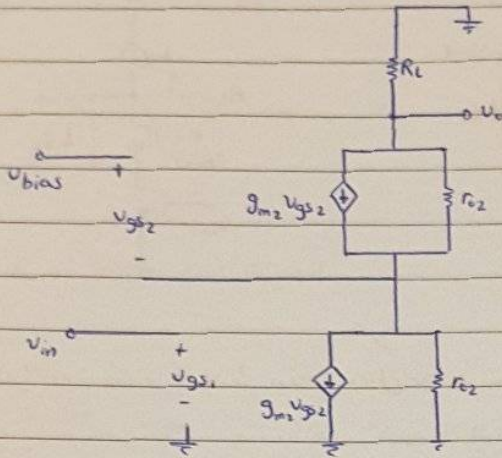 R_L
v_o
v_bias
+
v_gs2
-
g_m2 v_gs2
r_o2
v_in
+
v_gs1
-
g_m2 v_gs2
r_o2